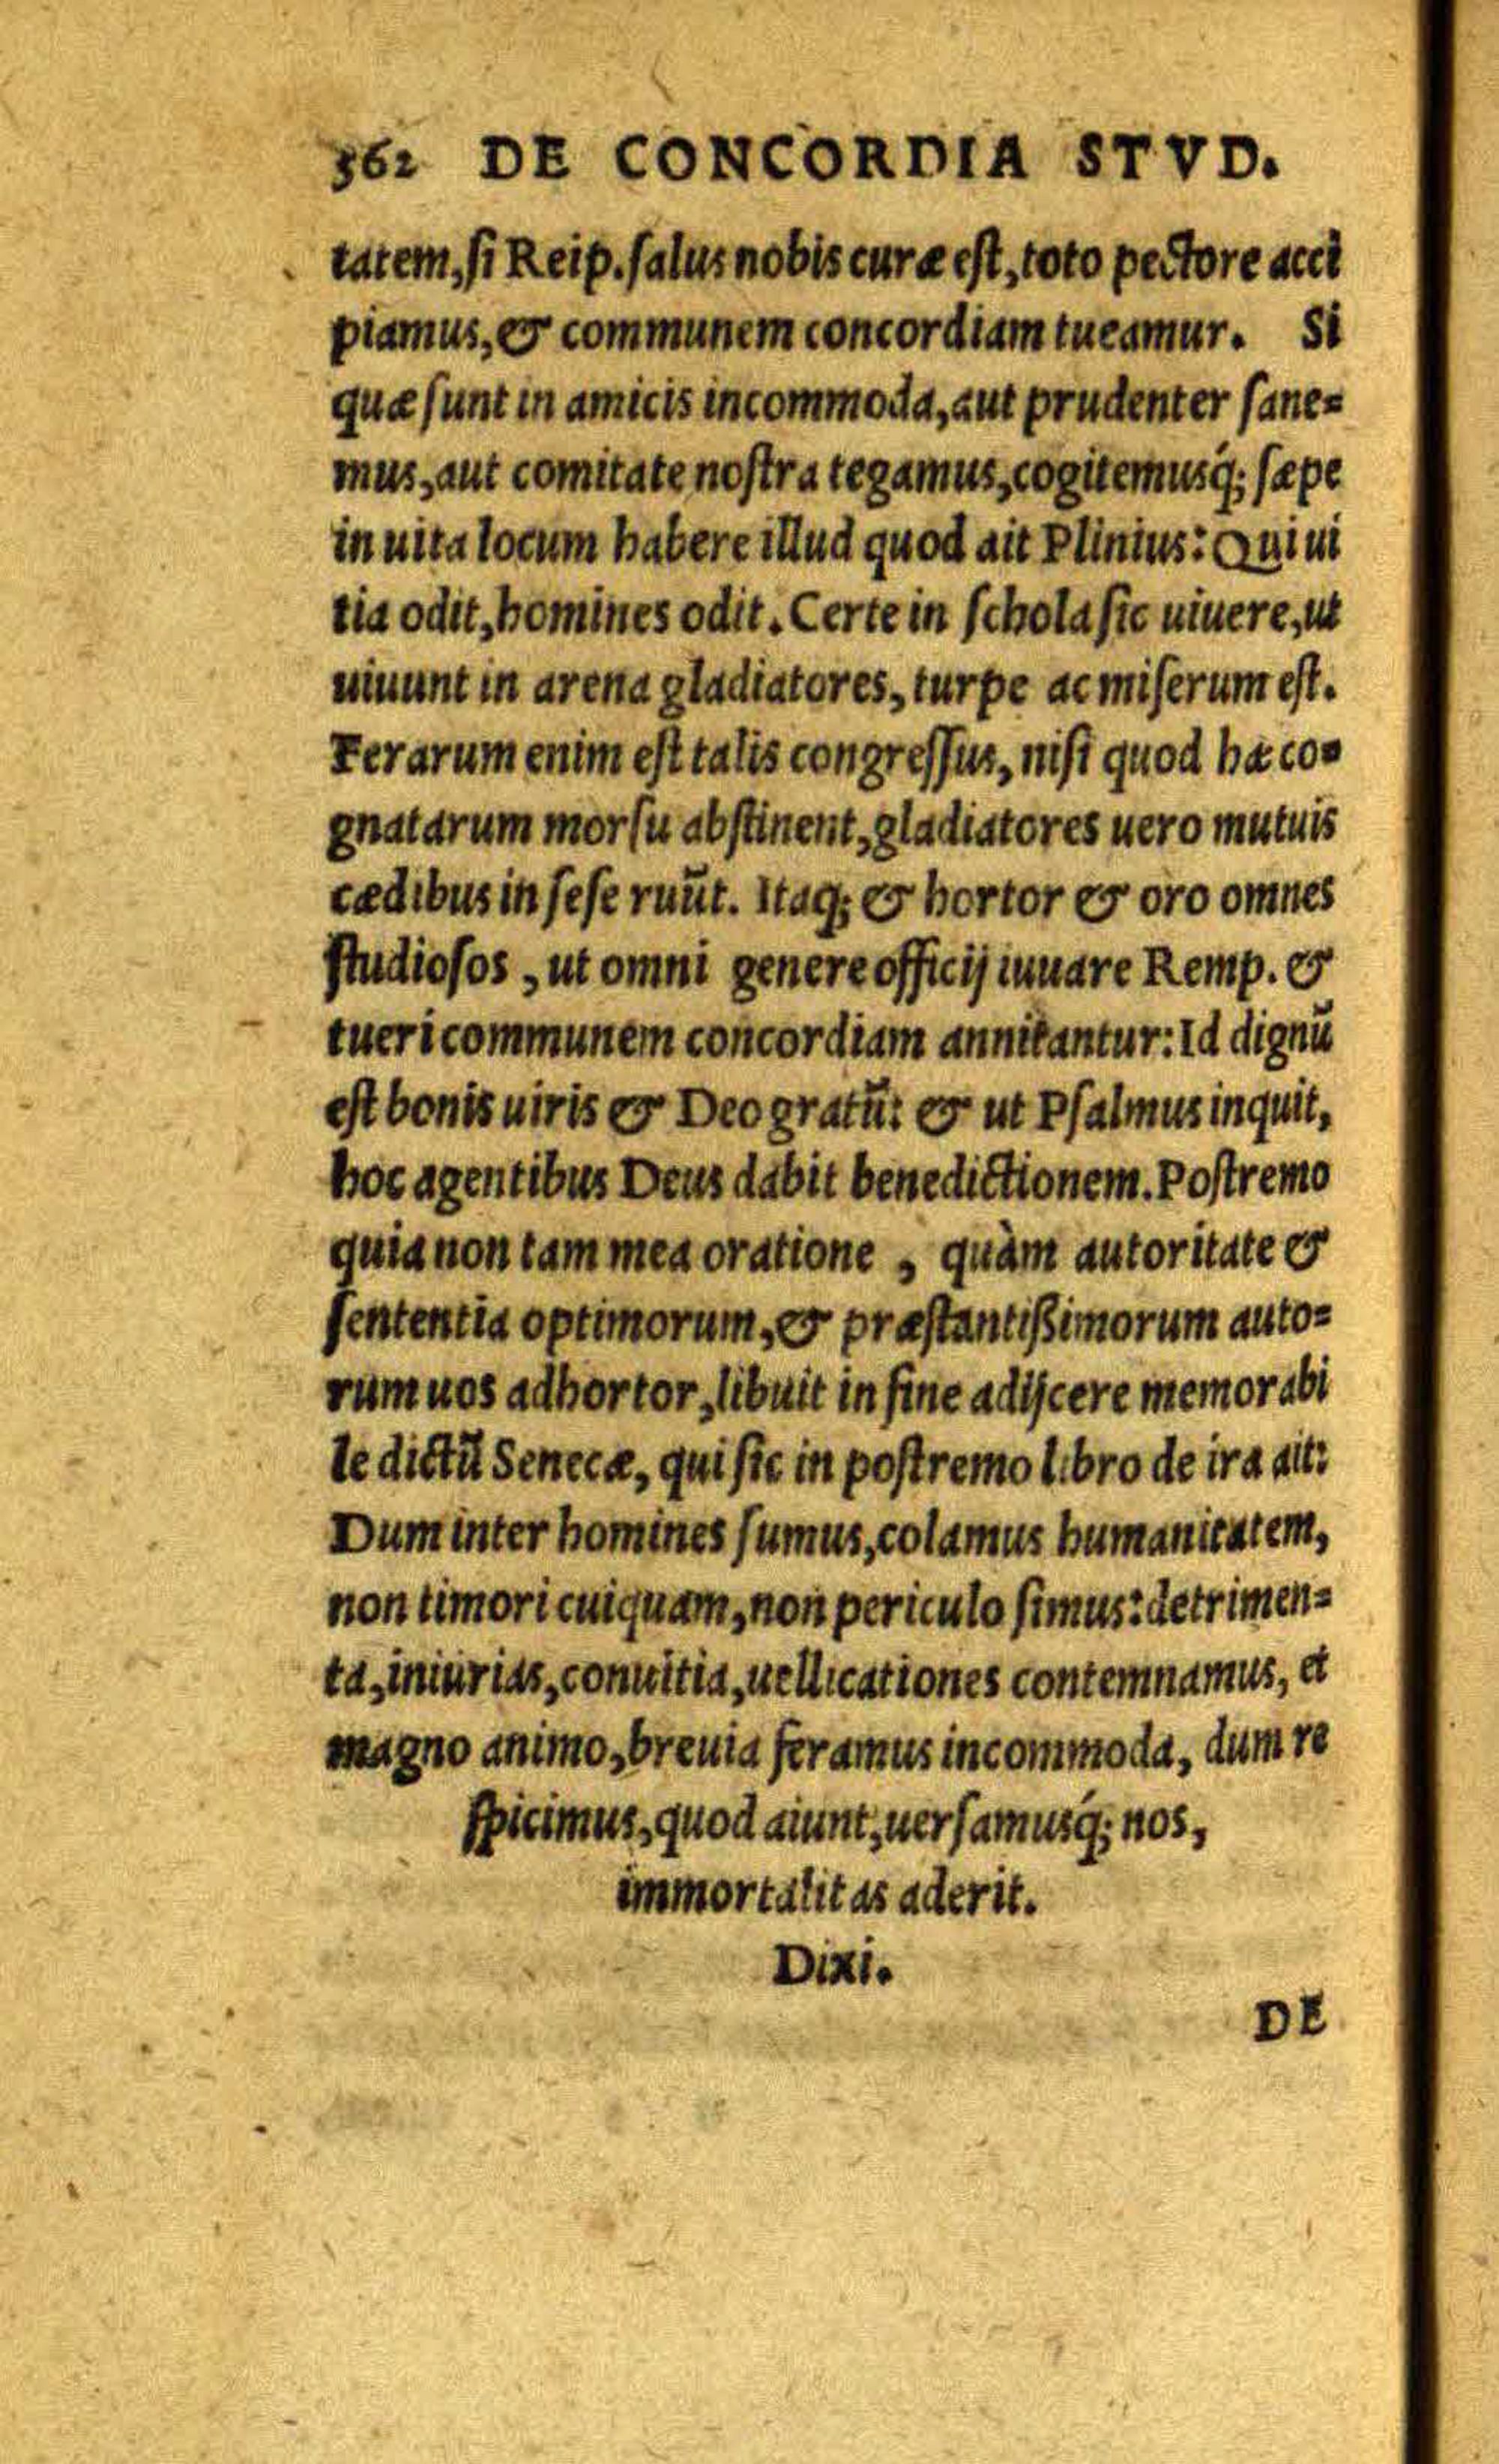 362 DE CONCORDIA STVD.
tatem, ſi Reip. ſalus nobis curæ eſt, toto pectore acci
piamus, & communem concordiam tueamur. Si
quæ ſunt in amicis incommoda, aut prudenter ſane=
mus, aut comitate noſtra tegamus, cogitemusq́; ſæpe
in uita locum habere illud quod ait Plinius: Qui ui
tia odit, homines odit. Certe in ſchola ſic uiuere, ut
uiuunt in arena gladiatores, turpe ac miſerum eſt.
Ferarum enim eſt talis congreſſus, niſi quod hæ co=
gnatarum morſu abſtinent, gladiatores uero mutuis
cædibus in ſeſe ruūt. Itaq; & hortor & oro omnes
ſtudioſos, ut omni genere officij iuuare Remp. &
tueri communem concordiam annitantur: Id dignū
eſt bonis uiris & Deo gratū: & ut Pſalmus inquit,
hoc agentibus Deus dabit benedictionem. Poſtremo
quia non tam mea oratione, quàm autoritate &
ſententia optimorum, & præſtantißimorum auto=
rum uos adhortor, libuit in fine adijcere memorabi
le dictū Senecæ, qui ſic in poſtremo libro de ira ait:
Dum inter homines ſumus, colamus humanitatem,
non timori cuiquam, non periculo ſimus: detrimen=
ta, iniurias, conuitia, uellicationes contemnamus, et
magno animo, breuia feramus incommoda, dum re
ſpicimus, quod aiunt, uerſamusq́; nos,
immortalitas aderit.
Dixi.
DE